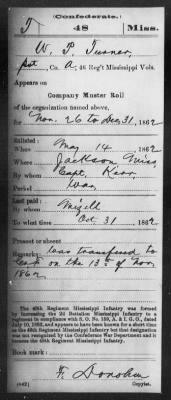 (Confederate.)
T 48 Miss.
W. P. Turner
Pvt, Co. A, 48 Reg't Mississippi Vols.
Appears on
Company Muster Roll
of the organization named above,
for Nov. 26 to Dec 31, 1862
Enlisted:
When May 14 1862
Where Jackson Miss,
By whom Capt. Kerr
Period War
Last paid:
By whom Mizell
To what time Oct. 31, 1862
Present or absent
Remarks: Was transferred to
on the 13th of Nov.
1862
The 48th Regiment Mississippi Infantry was formed
by increasing the 2d Battalion Mississippi Infantry to a
regiment in compliance with S. O. No. 159, A. & I. G. O., dated
July 10, 1862, and appears to have been known for a short time
as the 49th Regiment Mississippi Infantry but that designation
was not recognized by the Confederate War Department and it became
the 48th Regiment Mississippi Infantry.
Book mark:
(642) F. Donohue
Copyist.